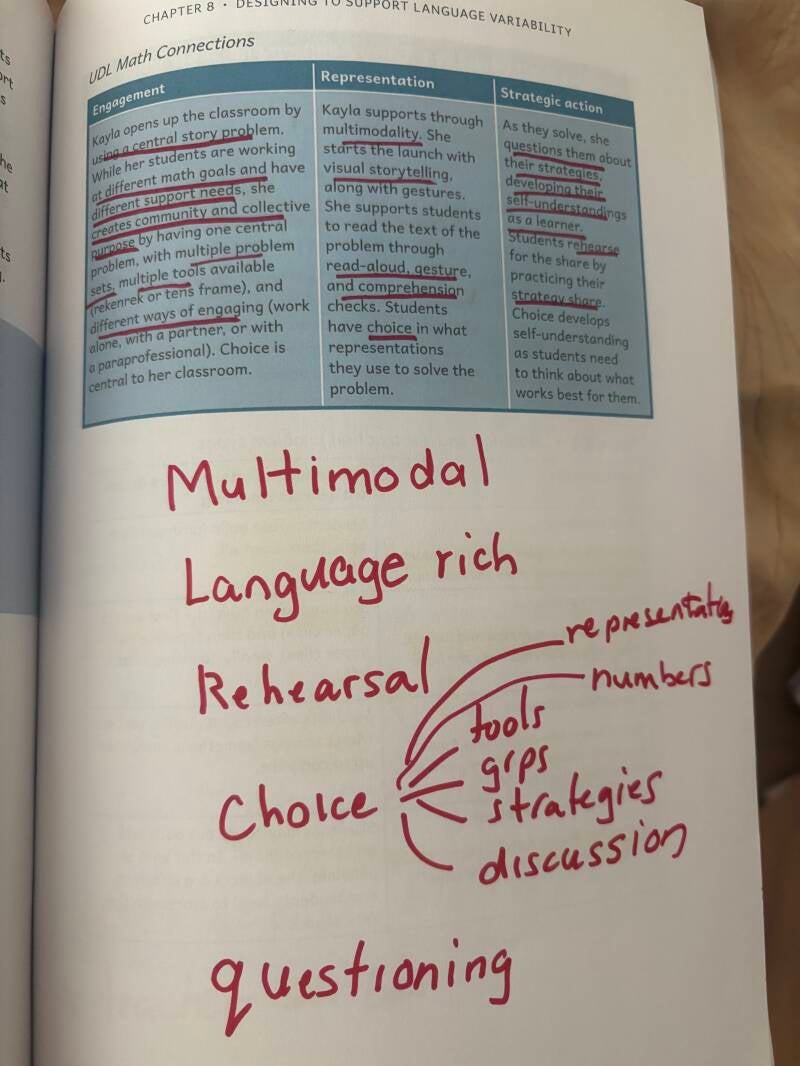 CHAPTER 8 • DESIGNING TO SUPPORT LANGUAGE VARIABILITY
UDL Math Connections
Engagement
Kayla opens up the classroom by
using a central story problem.
While her students are working
at different math goals and have
different support needs, she
creates community and collective
purpose by having one central
problem, with multiple problem
sets, multiple tools available
(rekenrek or tens frame), and
different ways of engaging (work
alone, with a partner, or with
a paraprofessional). Choice is
central to her classroom.
Representation
Kayla supports through
multimodality. She
starts the launch with
visual storytelling,
along with gestures.
She supports students
to read the text of the
problem through
read-aloud, gesture,
and comprehension
checks. Students
have choice in what
representations
they use to solve the
problem.
Strategic action
As they solve, she
questions them about
their strategies,
developing their
self-understandings
as a learner.
Students rehearse
for the share by
practicing their
strategy share.
Choice develops
self-understanding
as students need
to think about what
works best for them.
Multimodal
Language rich
Rehearsal
Choice
representatios
numbers
tools
grps
strategies
discussion
questioning